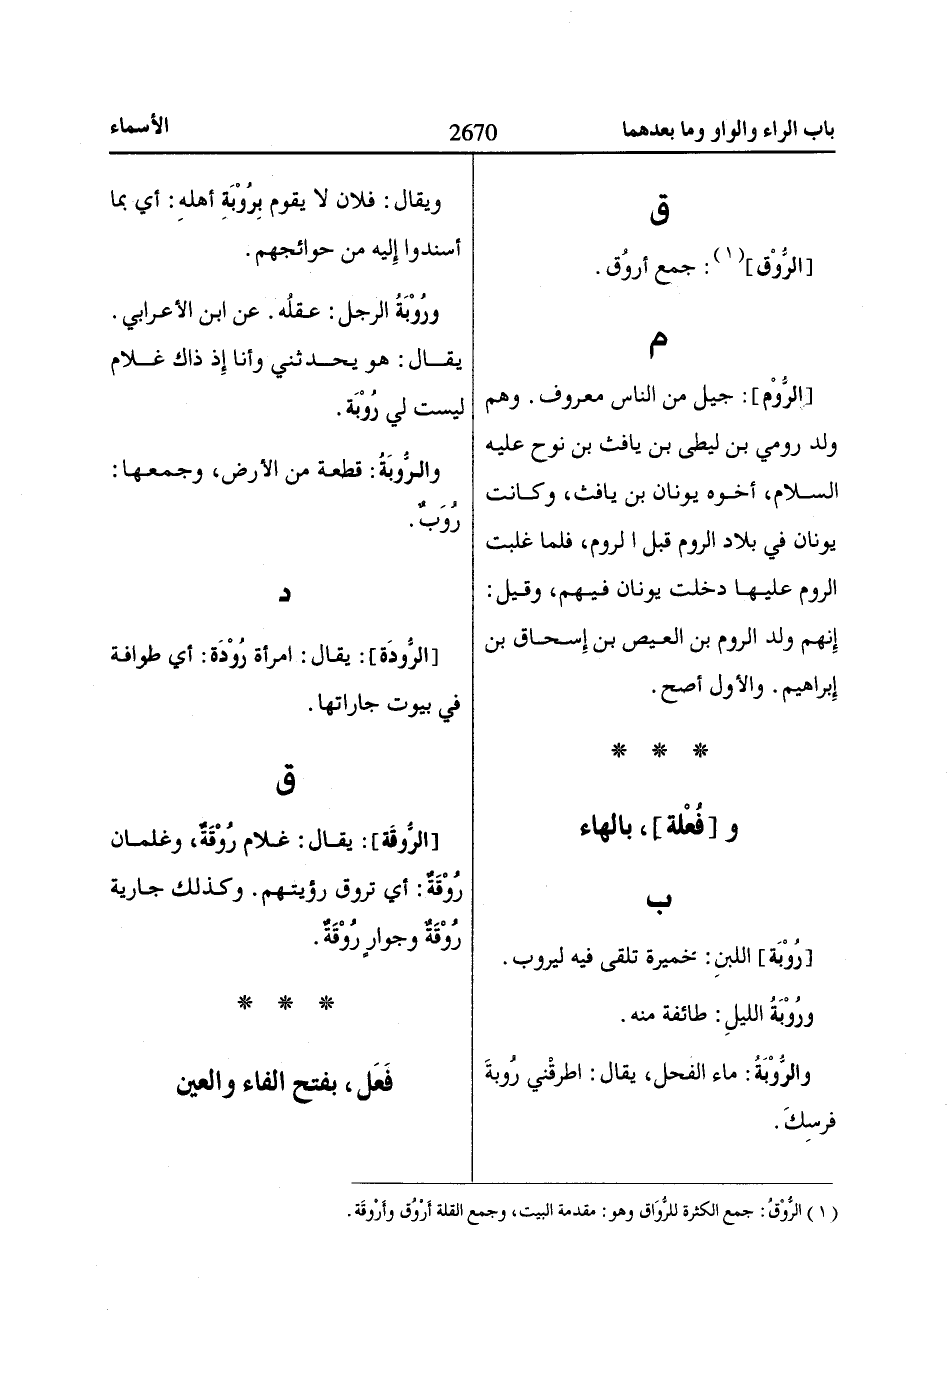 باب الراء والواو وما بعدهما
2670
الأسماء
ق
[الرُّوْق](١): جمع أروُق.
م
[الرُّوْم]: جيل من الناس معروف. وهم
ولد رومي بن ليطى بن يافث بن نوح عليه
السلام، أخوه يونان بن يافث، وكانت
يونان في بلاد الروم قبل ا لروم، فلما غلبت
الروم عليها دخلت يونان فيهم، وقيل:
إنهم ولد الروم بن العيص بن إسحاق بن
إبراهيم. والأول أصح.
* * *
و [فُعْلة]، بالهاء
ب
[رُوْبَة] اللبنِ: خميرة تلقى فيه ليروب.
ورُوْبَةُ الليلِ: طائفة منه.
والرُّوْبَةُ: ماء الفحل، يقال: اطرقْني رُوبةَ
فرسِكَ.
ويقال: فلان لا يقوم بِرُوْبَةِ أهله: أي بما
أسندوا إليه من حوائجهم.
ورُوْبَةُ الرجل: عقلُه. عن ابن الأعرابي.
يقال: هو يحدثني وأنا إذ ذاك غلام
ليست لي رُوْبَة.
والرُّوبَةُ: قطعة من الأرض، وجمعها:
رُوَبٌ.
د
[الرُّودَة]: يقال: امرأة رُوْدَة: أي طوافة
في بيوت جاراتها.
ق
[الرُّوقَة]: يقال: غلام رُوْقَةٌ، وغلمان
رُوْقَةٌ: أي تروق رؤيتهم. وكذلك جارية
رُوْقَةٌ وجوارٍ رُوْقَةٌ.
* * *
فَعَل، بفتح الفاء والعين
(١) الرُّوْقُ: جمع الكثرة للرُّوَاق وهو: مقدمة البيت، وجمع القلة أَرْوُق وأَرْوِقَة.